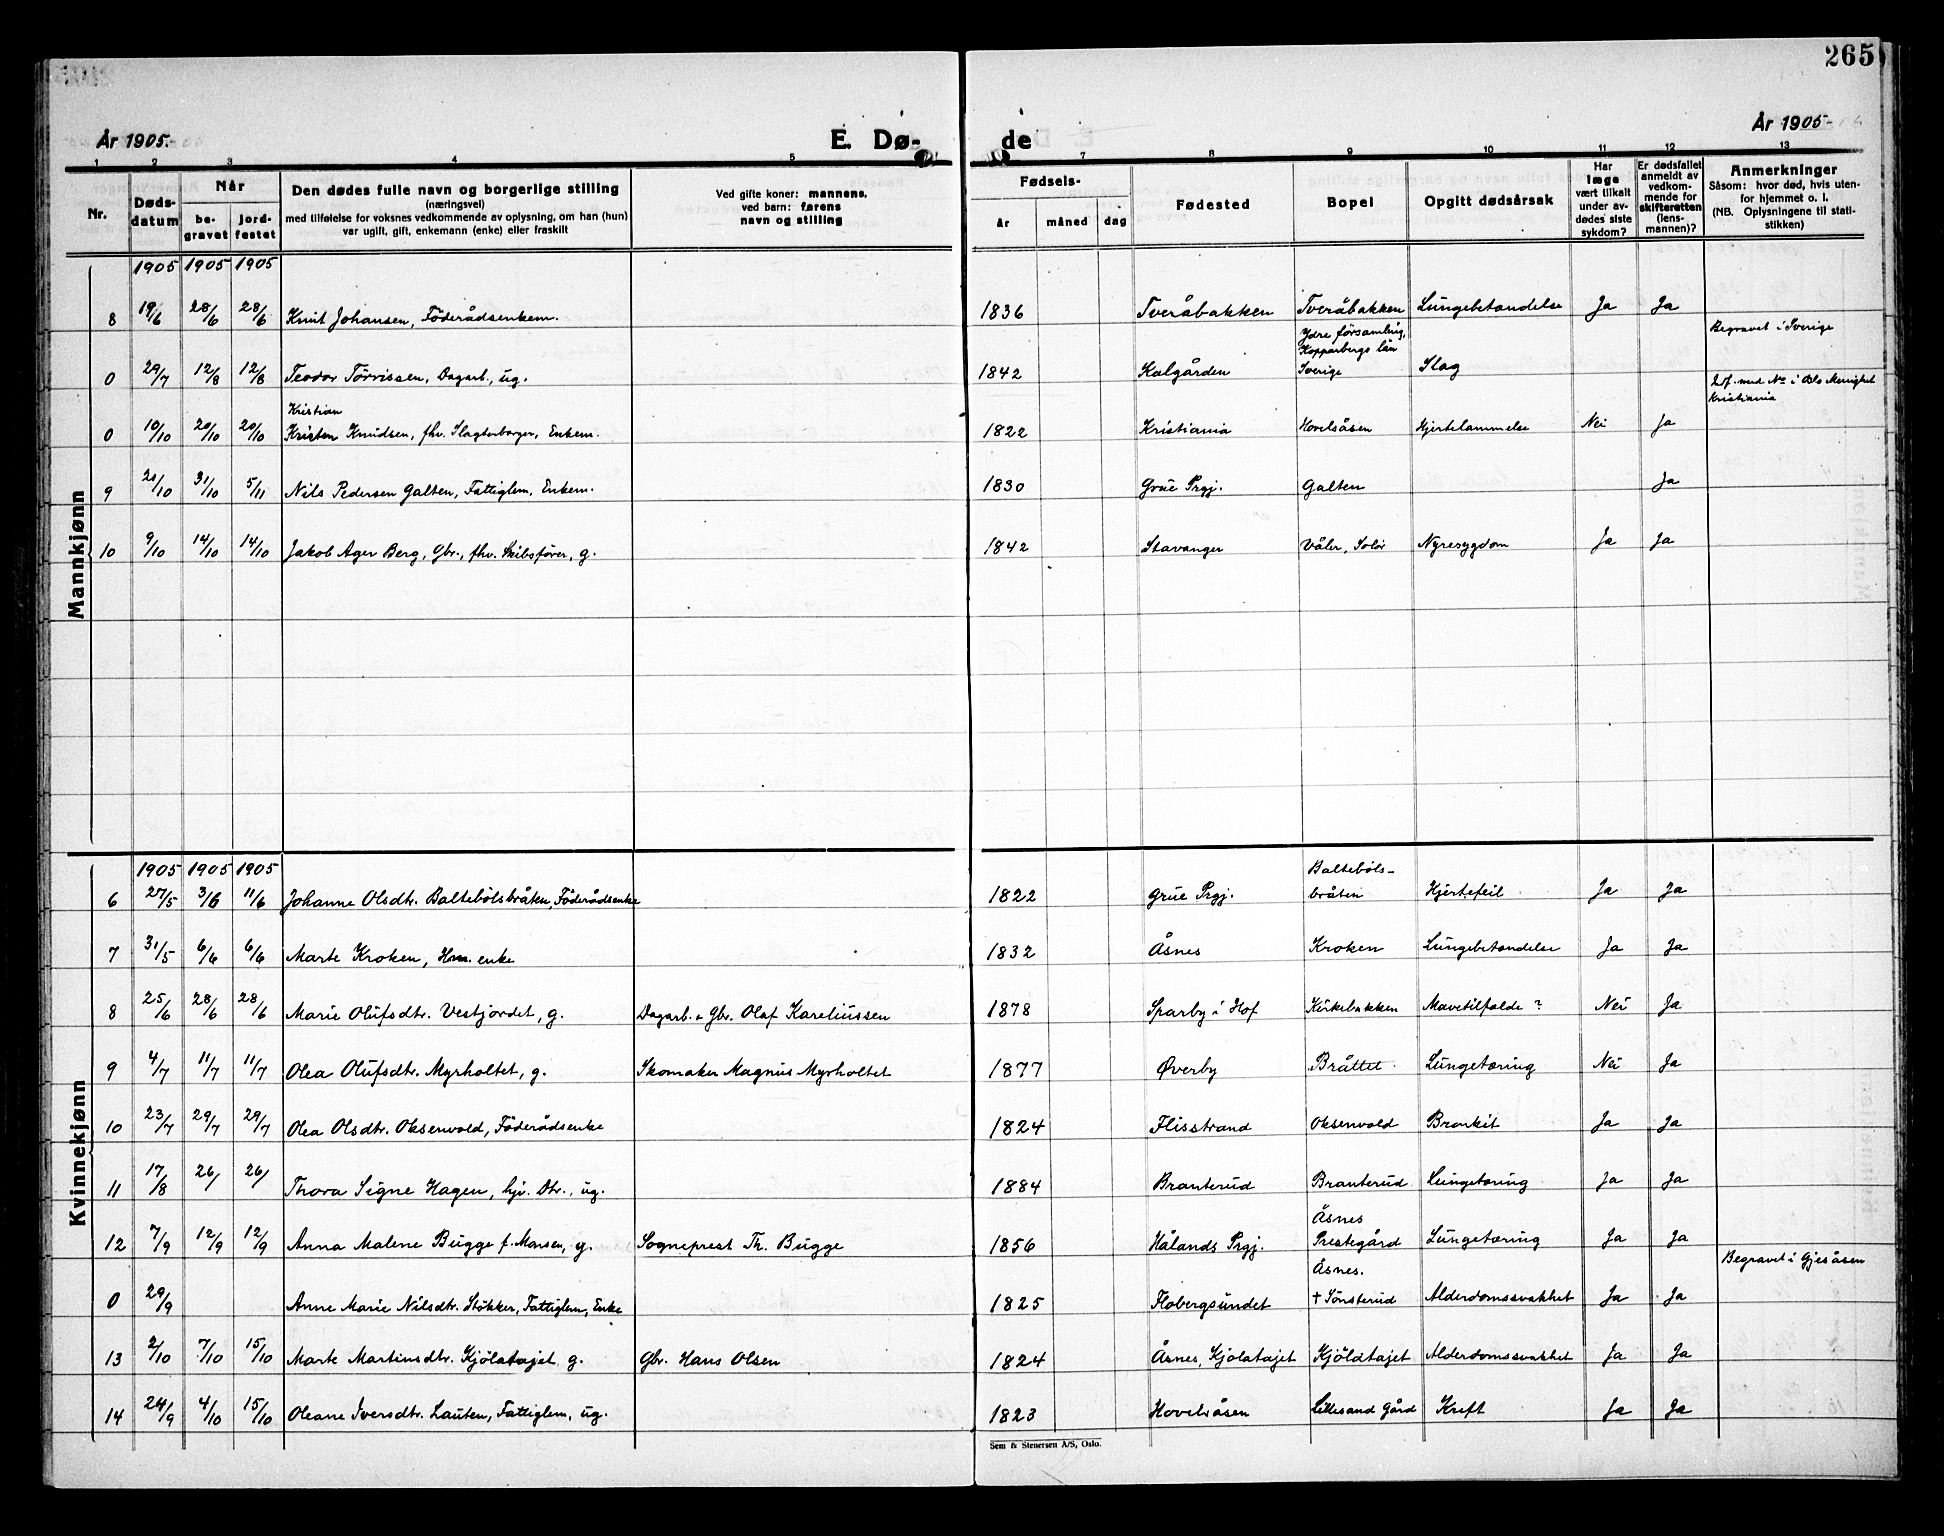 265
År 1905.
E. Dø-
de
År 1905
1 2 3 4 5 7 8 9 10 11 12 13
Nr.
Døds-
datum
Når
be-
gravet
jord-
festet
Den dødes fulle navn og borgerlige stilling
(næringsvei)
med tilføielse for voksnes vedkommende av oplysning, om han (hun)
var ugift, gift, enkemann (enke) eller fraskilt
Ved gifte koner: mannens,
ved barn: farens
navn og stilling
Fødsels-
år
måned
dag
Fødested
Bopel
Opgitt dødsårsak
Har
læge
vært tilkalt
under av-
dødes siste
sykdom?
Er dødsfallet
anmeldt av
vedkom-
mende for
skifteretten
(lens-
mannen)?
Anmerkninger
Såsom: hvor død, hvis uten-
for hjemmet o. l.
(NB. Oplysningene til stati-
stikken)
Mannkjønn
1905 1905 1905
8 19/6 28/6 28/6 Knut Johansen, Föderådsenkem. 1836 Tveråbakken Tveråbakken Lungebetændelse Ja Ja
Ydre församling,
Kopparbergs län
Begravet i Sverige
0 29/7 12/8 12/8 Teodor Törrissen, Dagarb., ug. 1842 Kalgården Sverige Slag
2ɔ: med No i Oslo Menighet
Kristiania
Kristian
0 10/10 20/10 20/10 Kristen Knudsen, fhv. Slagterborger, Enkem. 1822 Kristiania Hovelsåsen Hjertelammelse Nei Ja
9 21/10 31/10 5/11 Nils Pedersen Galten, Fattiglem, Enkem. 1830 Grue Prgj. Galten Ja
10 9/10 14/10 14/10 Jakob Ager Berg, Gbr., fhv. Skibsfører, g. 1842 Stavanger Våler, Solör Nyresygdom Ja Ja
Kvinnekjønn
1905 1905 1905
Baltebøls-
6 27/5 3/6 11/6 Johanne Olsdtr. Baltebölsbråten, Föderådsenke 1822 Grue Prgj. bråten Hjertefeil Ja Ja
7 31/5 6/6 6/6 Marte Kroken, Hm. enke 1832 Åsnes Kroken Lungebetændelse Ja Ja
8 25/6 28/6 28/6 Marie Olufsdtr. Vestjordet, g. Dagarb. & Gbr. Olaf Kareliussen 1878 Sparby i Hof Kirkebakken Mavetilfælde ? Nei Ja
9 4/7 11/7 11/7 Olea Olufsdtr. Myrholtet, g. Skomaker Magnus Myrholtet 1877 Øverby Bråttet Lungetæring Nei Ja
10 23/7 29/7 29/7 Olea Olsdtr. Oksenvold, Föderådsenke 1824 Flisstrand Oksenvold Bronkit Ja Ja
11 17/8 26/ 26/ Thora Signe Hagen, hjv. Dtr., ug. 1884 Branterud Branterud Lungetæring Ja Ja
Åsnes
12 7/9 12/9 12/9 Anna Malene Bugge f. Monsen, g. Sogneprest Th. Bugge 1856 Hålands Prgj. Prestegård Lungetæring Ja Ja
Åsnes.
Begravet i Gjesåsen
0 29/9 Anne Marie Nilsdtr. Stökker, Fattiglem, Enke 1825 Flobergsundet + Sönsterud Alderdomssvakhet Ja Ja
13 2/10 7/10 15/10 Marte Martinsdtr. Kjölatajet g. Gbr. Hans Olsen 1824 Åsnes, Kjölatajet Kjöldtajet Alderdomssvakhet Ja Ja
14 24/9 4/10 15/10 Oleane Iversdtr. Lauten, Fattiglem, ug. 1823 Hovelsåsen Lillesand Gård Kreft Ja Ja
Sem & Stenersen A/S, Oslo.